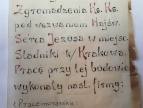 Zgromadzenia Ks. Ks.
pod wezwaniem Najśw.
Serca Jezusa w miejsc.
Stadniki k/Krakowa.
Pracę przy tej budowie
wykonały nast. firmy: